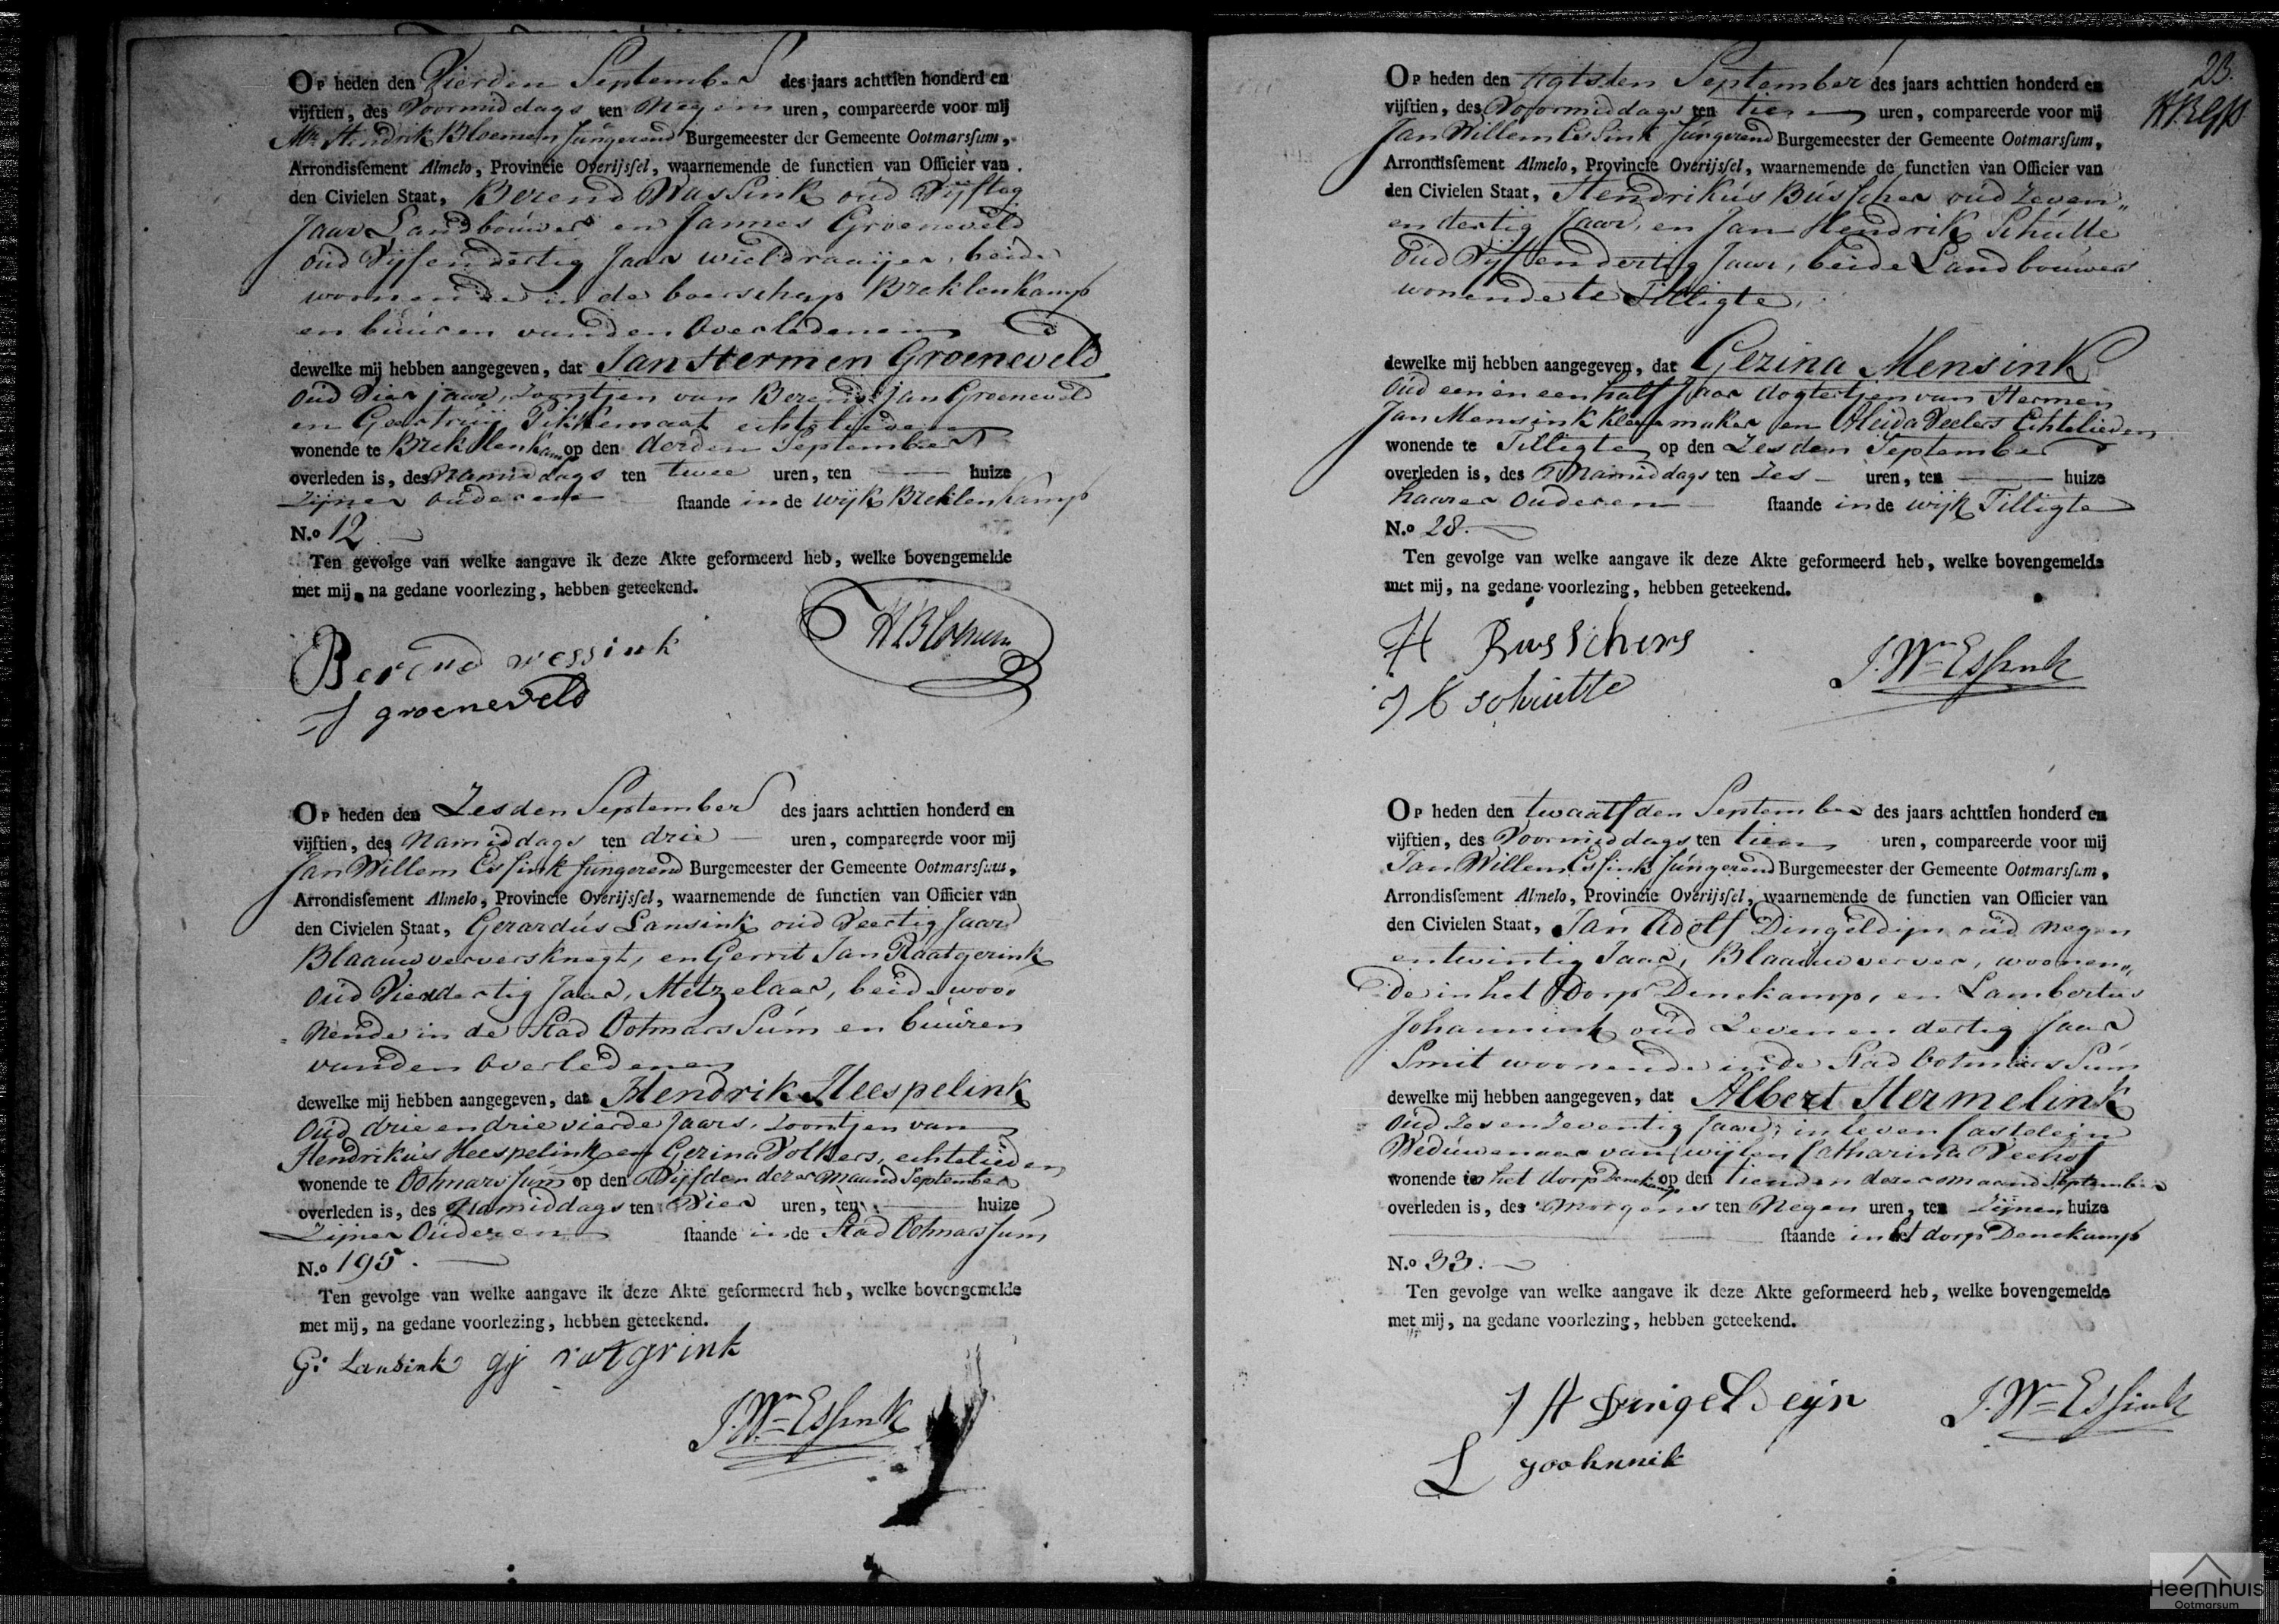 Op heden den Vierden September des jaars achttien honderd en
vijftien, des Voormiddags ten Negen uren, compareerde voor mij
Mr. Hendrik Bloemen fungerend Burgemeester der Gemeente Ootmarsum,
Arrondissement Almelo, Provincie Overijssel, waarnemende de functien van Officier van
den Civielen Staat, Berend Wassink oud Vijftig
Jaar Landbouwer en Jannes Groeneveld
oud Vijfendertig Jaar wieldraaijer, beide
woonende in de boerschap Breklenkamp
en buuren vanden Overledenen
dewelke mij hebben aangegeven, dat Jan Hermen Groeneveld
oud Vier jaar, zoontjen van Berend Jan Groeneveld
en Geertruij Pikkemaat echtelieden
wonende te Breklenkamp op den derden September
overleden is, des Namiddags ten twee uren, ten huize
Zijner ouderen staande in de wijk Breklenkamp
N.o 12.
Ten gevolge van welke aangave ik deze Akte geformeerd heb, welke bovengemelde
met mij, na gedane voorlezing, hebben geteekend.
HBloemen
Berend wessink
J groeneveld
Op heden den Zesden September des jaars achttien honderd en
vijftien, des Namiddags ten drie uren, compareerde voor mij
Jan Willem Essink fungerend Burgemeester der Gemeente Ootmarsum,
Arrondissement Almelo, Provincie Overijssel, waarnemende de functien van Officier van
den Civielen Staat, Gerardus Lansink oud Veertig Jaar
Blaauwverversknegt, en Gerrit Jan Raatgerink
oud Vierdertig Jaar, Metzelaar, beide woo=
nende in de Stad Ootmarssum en buuren
vanden Overledenen
dewelke mij hebben aangegeven, dat Hendrik Heespelink
Oud drie en drie vierde Jaars, zoontjen van
Hendrikus Heespelink en Gezina Volkers, echtelieden
wonende te Ootmarssum op den Vijfden dezer maand September
overleden is, des Namiddags ten Vier uren, ten huize
Zijner Ouderen staande in de Stad Ootmarssum
N.o 195.
Ten gevolge van welke aangave ik deze Akte geformeerd heb, welke bovengemelde
met mij, na gedane voorlezing, hebben geteekend.
G: Lansink gj ratgrink
J. Wm Essink
23.
Op heden den Agtsten September des jaars achttien honderd en
vijftien, des Voormiddags ten tien uren, compareerde voor mij
Jan Willem Essink fungerend Burgemeester der Gemeente Ootmarsum,
Arrondissement Almelo, Provincie Overijssel, waarnemende de functien van Officier van
den Civielen Staat, Hendrikus Busscher oud Zeven„
en dertig Jaar, en Jan Hendrik Schutte
Oud Vijf en dertig Jaar, beide Landbouwers
wonende te Tilligte,
dewelke mij hebben aangegeven, dat Gezina Mensink
Oud een en een half Jaar dogtertjen van Hermen
Jan Mensink Kleermaker en Aleida Veelers Echtelieden
wonende te Tilligte op den Zesden September
overleden is, des Namiddags ten Zes uren, ten huize
haarer Ouderen staande in de wijk Tilligte
N.o 28.
Ten gevolge van welke aangave ik deze Akte geformeerd heb, welke bovengemelde
met mij, na gedane voorlezing, hebben geteekend.
H Busschers
J. Wm Essink
J H schutte
Op heden den twaalfden September des jaars achttien honderd en
vijftien, des Voormiddags ten tien uren, compareerde voor mij
Jan Willem Essink fungerend Burgemeester der Gemeente Ootmarsum,
Arrondissement Almelo, Provincie Overijssel, waarnemende de functien van Officier van
den Civielen Staat, Jan Adolf Dingeldijn oud negen
entwintig Jaar, Blaauwverver, woonen„
de in het Dorp Denekamp, en Lambertus
Johannink oud Zeven en dertig Jaar
Smit woonende in de Stad Ootmarssum
dewelke mij hebben aangegeven, dat Albert Hermelink
Oud Zes en Zeventig Jaar, in leven Castelein
Weduwenaar van wijlen Catharina Veehof
wonende in het dorp Denekamp op den tienden dezer maand September
overleden is, des Morgens ten Negen uren, ten Zijnen huize
staande in het dorp Denekamp
N.o 33.
Ten gevolge van welke aangave ik deze Akte geformeerd heb, welke bovengemelde
met mij, na gedane voorlezing, hebben geteekend.
J A Dingeldeijn
J. Wm Essink
L goohnnik
Heemhuis
Ootmarsum